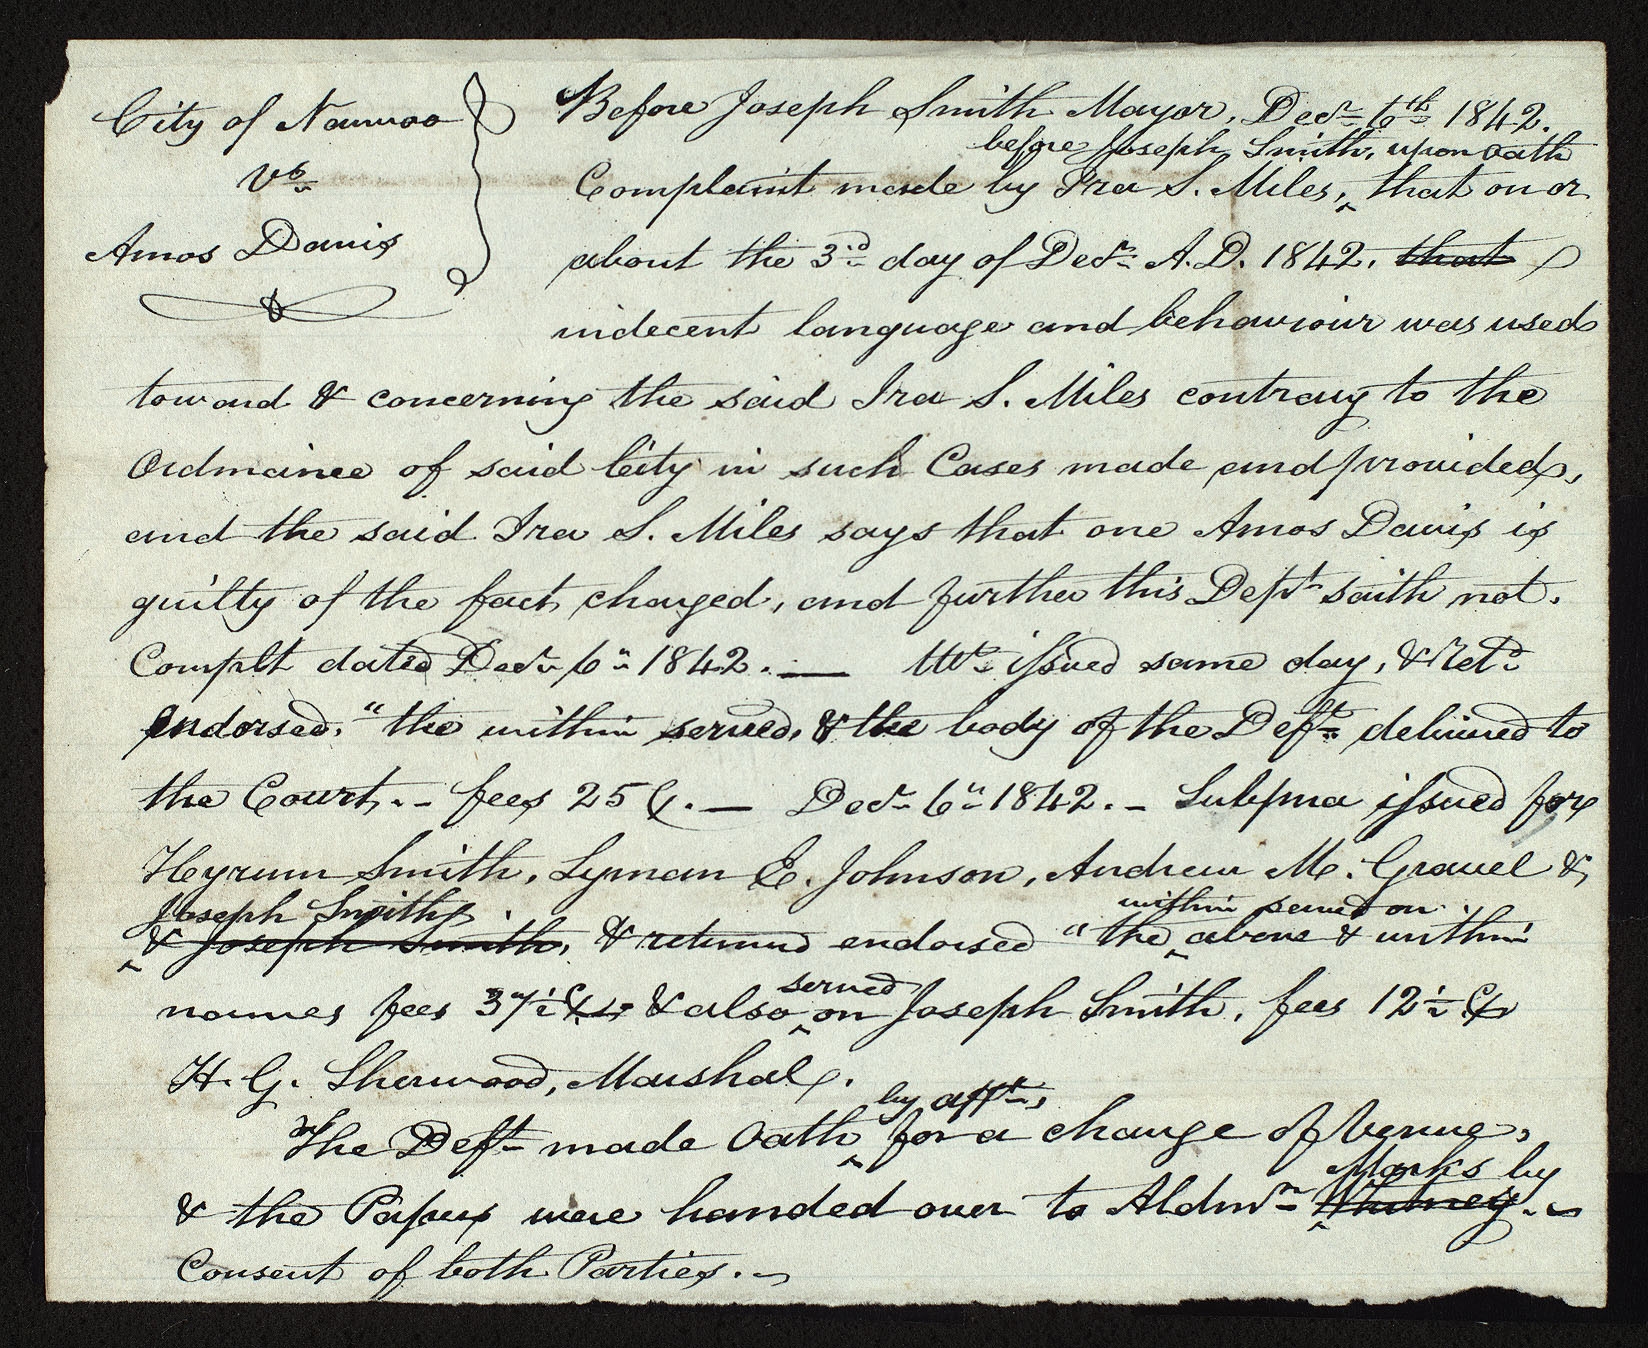 City of Nauvoo
vs
Amos Davis
&
Before Joseph Smith Mayor, Decr. 6th 1842.
before Joseph Smith, upon oath
Complaint made by Ira S. Miles, ^ that on or
about the 3rd day of Decr. A.D. 1842. that
indecent language and behaviour was used
toward & concerning the said Ira S. Miles contrary to the
Ordinance of said City in such Cases made and provided,
and the said Ira S. Miles says that one Amos Davis is
guilty of the fact charged, and further this Dept saith not.
Complt dated Decr. 6th 1842. — Wt. issued same day, & Retd.
endorsed, "the within served, & the body of the Deft. delivered to
the Court. - fees 25 C. — Decr. 6th 1842. - Subpna issued for
Heyrum Smith, Lyman E. Johnson, Andrew M. Gravel &
Joseph Smith
^ & Joseph Smith, & returned endorsed "the ^ above & within
within served on
names fees 37½ C. & also ^ on Joseph Smith, fees 12½ C
served
H. G. Sherwood, Marshal.
by afft.,
The Deft. made Oath ^ for a change of Venue,
Marks by
& the Papers were handed over to Aldmn. ^ Whitney. -
Consent of both Parties. -